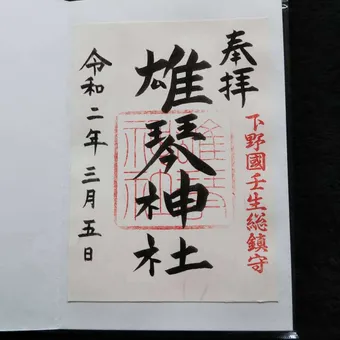 奉拝
下野國壬生総鎮守
雄琴神社
令和二年三月五日